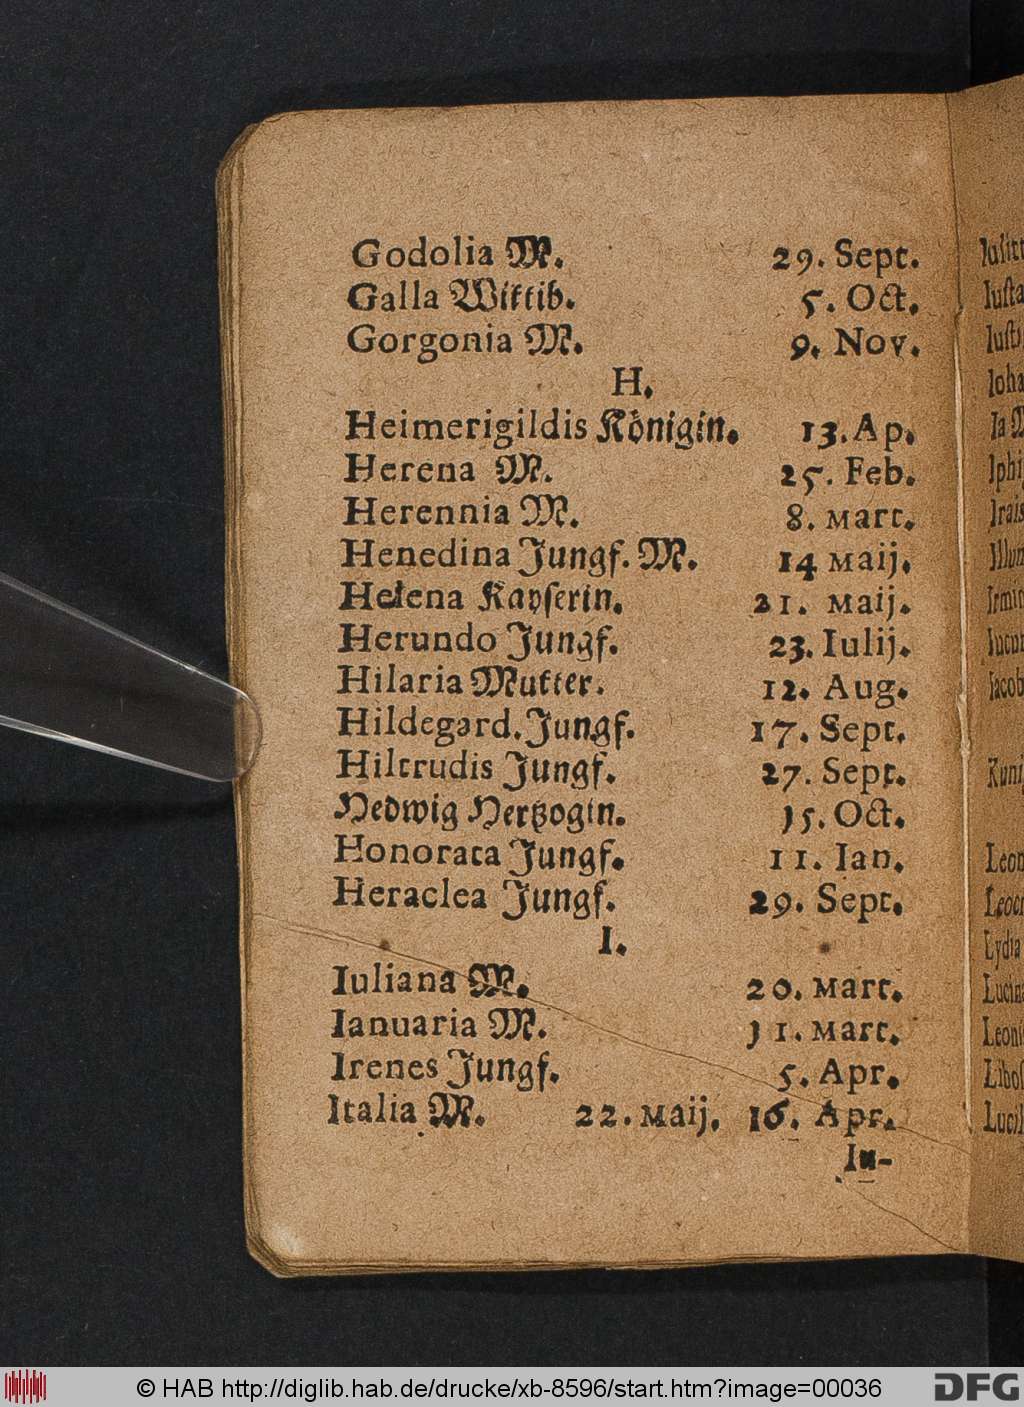 Godolia M. 29. Sept.
Galla Wittib. 5. Oct.
Gorgonia M. 9. Nov.
H.
Heimerigildis Königin. 13. Ap.
Herena M. 25. Feb.
Herennia M. 8. Mart.
Henedina Jungf. M. 14 Maij.
Helena Kayserin. 21. Maij.
Herundo Jungf. 23. Iulij.
Hilaria Mutter. 12. Aug.
Hildegard. Jungf. 17. Sept.
Hiltrudis Jungf. 27. Sept.
Hedwig Hertzogin. 15. Oct.
Honorata Jungf. 11. Ian.
Heraclea Jungf. 29. Sept.
I.
Iuliana M. 20. Mart.
Ianuaria M. 11. Mart.
Irenes Jungf. 5. Apr.
Italia M. 22. Maij. 16. Apr.
Iu-
Iusta
Ia M
Lydia
© HAB http://diglib.hab.de/drucke/xb-8596/start.htm?image=00036
DFG